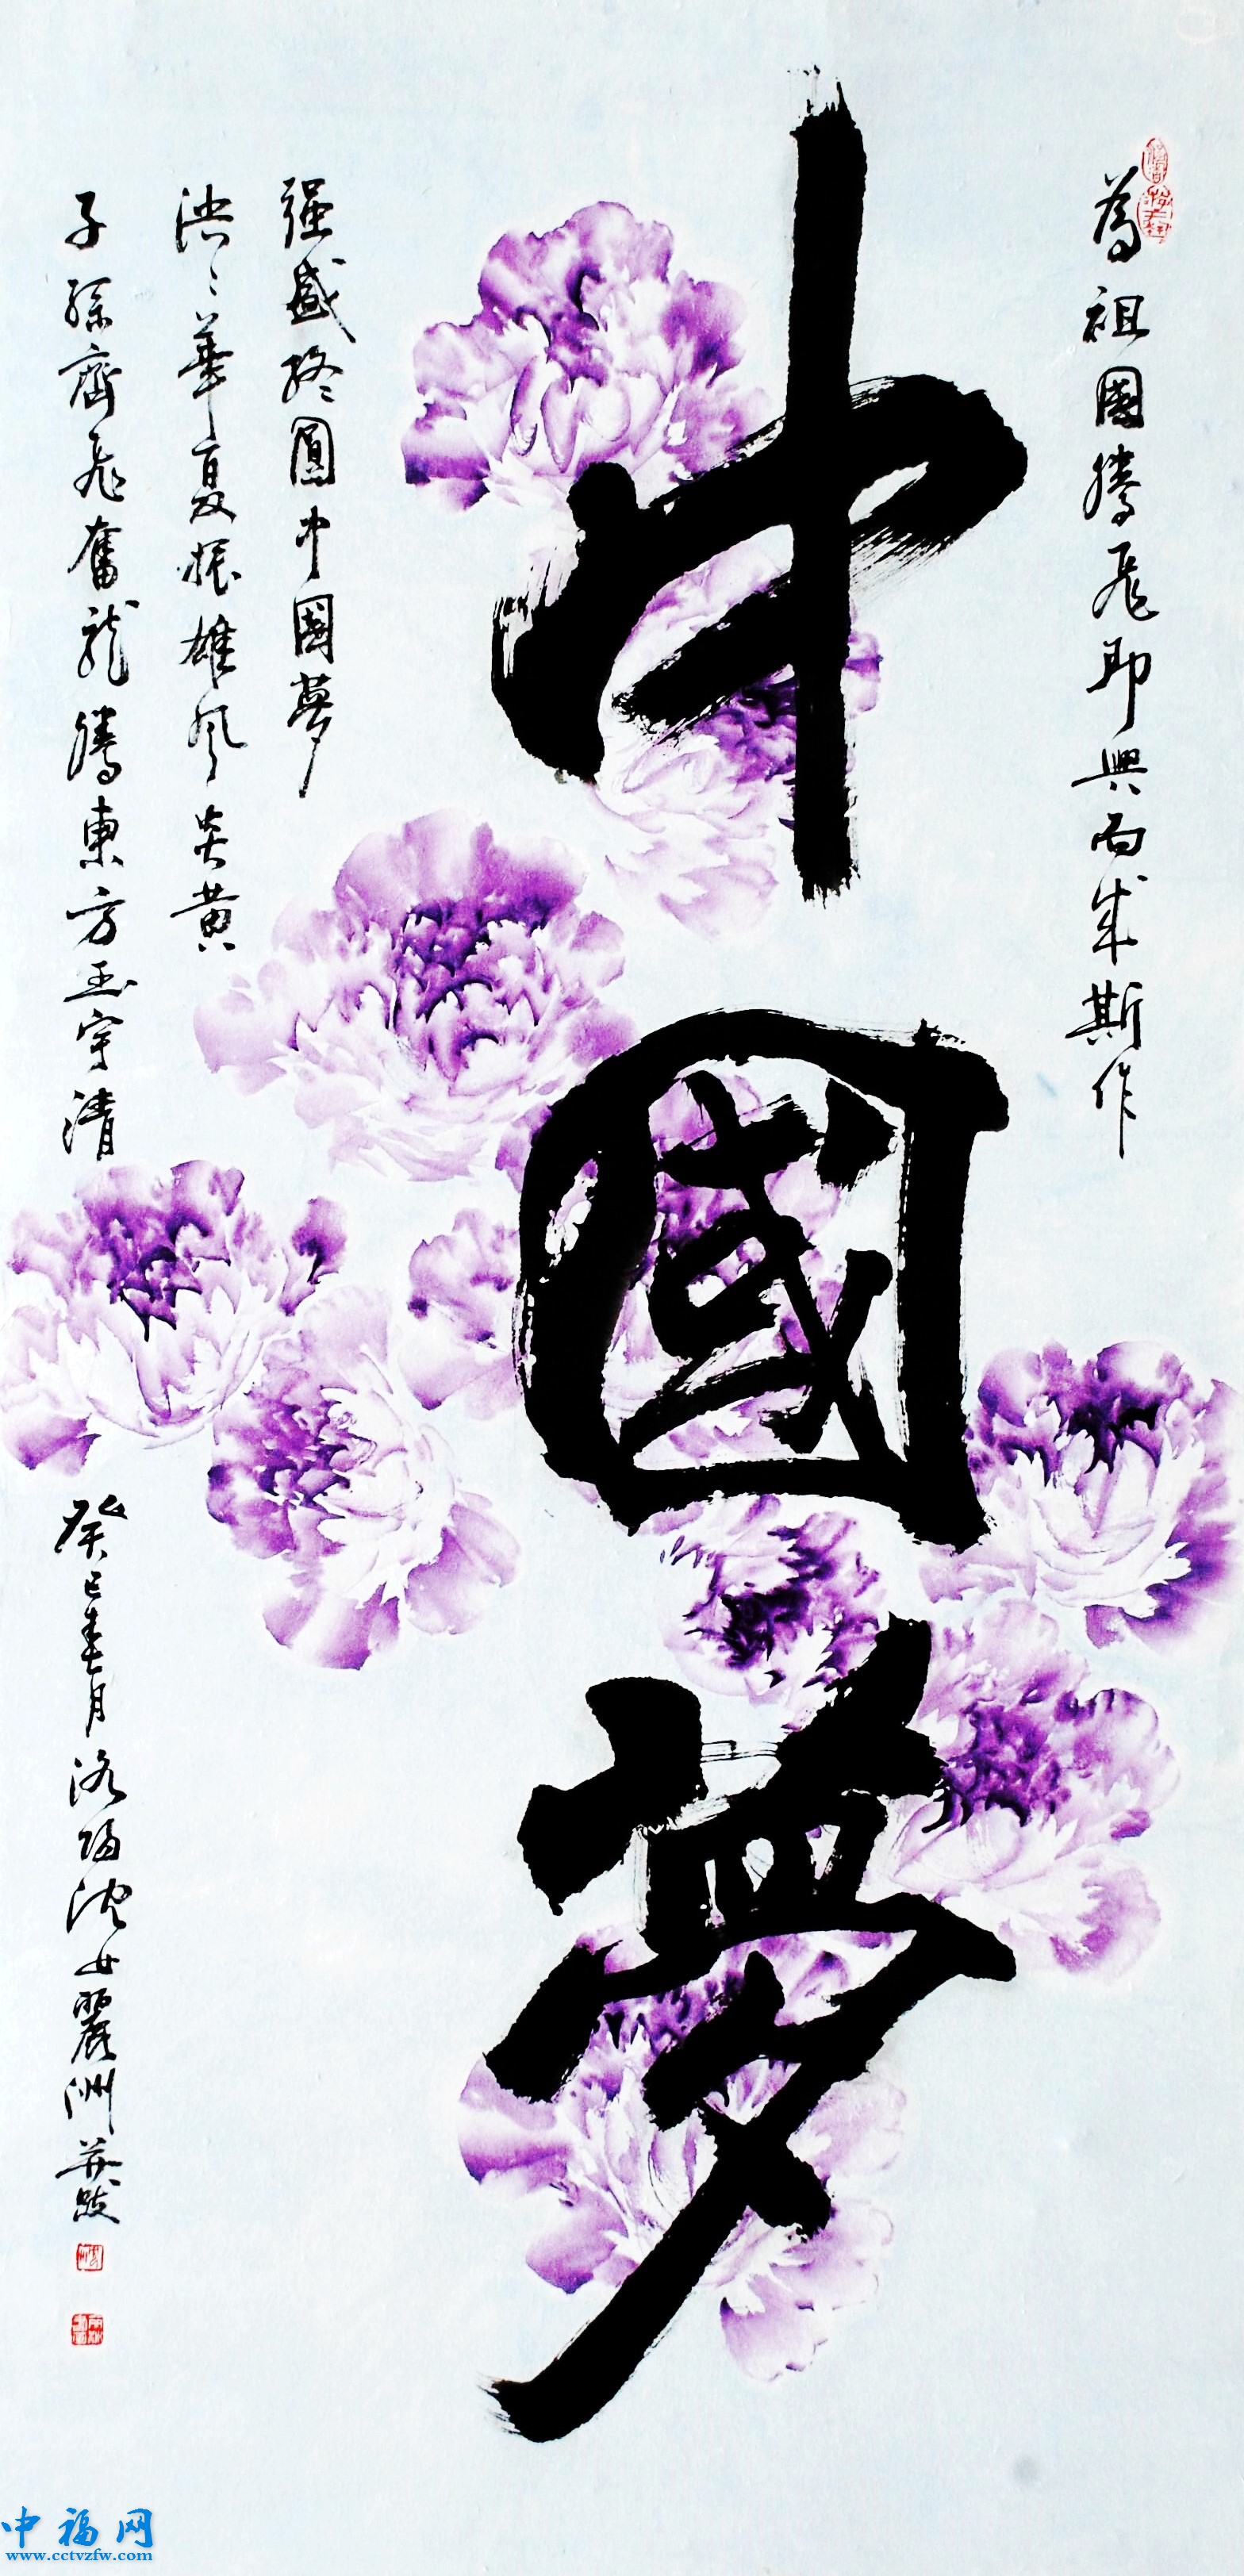 為祖國騰飛即興而成斯作
中國夢
强盛終圓中國夢
泱々華夏振雄風炎黄
子孫齊飛奮龍騰東方玉宇清
癸巳春月洛陽沈女麗洲並跋
中福网
www.cctvzfw.com